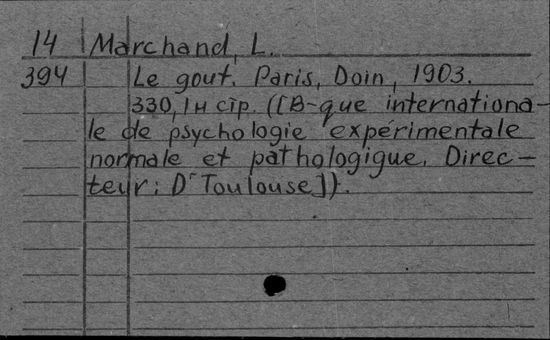 14 Marchand, L.
394 Le gout. Paris, Doin, 1903.
330, 1н стр. ([B-que internationa-
le de psychologie expérimentale
normale et pathologigue. Direc-
teur: Dr Toulouse]).